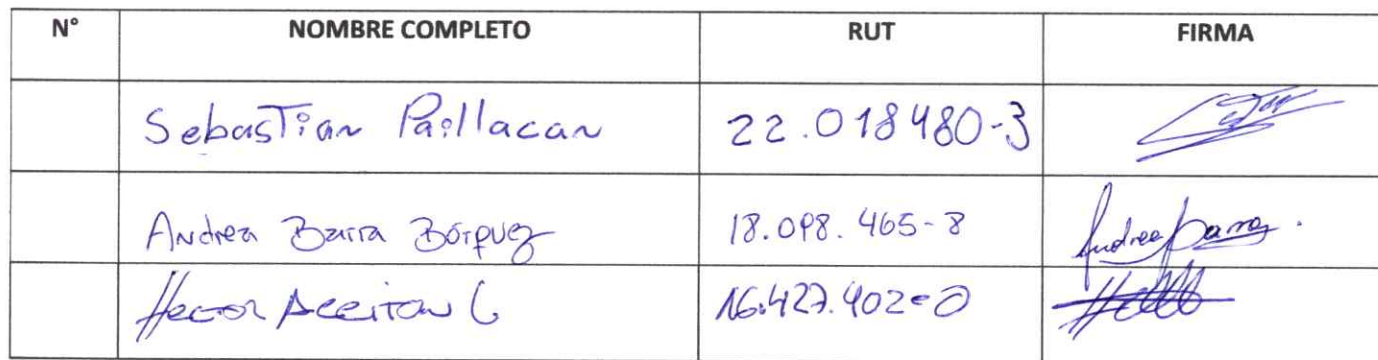 N° NOMBRE COMPLETO RUT FIRMA
Sebastian Paillacan 22.018480-3
Andrea Barra Bórquez 18.098.465-8 Andrea Barra.
Hector Aceiton G 16.427.402-0